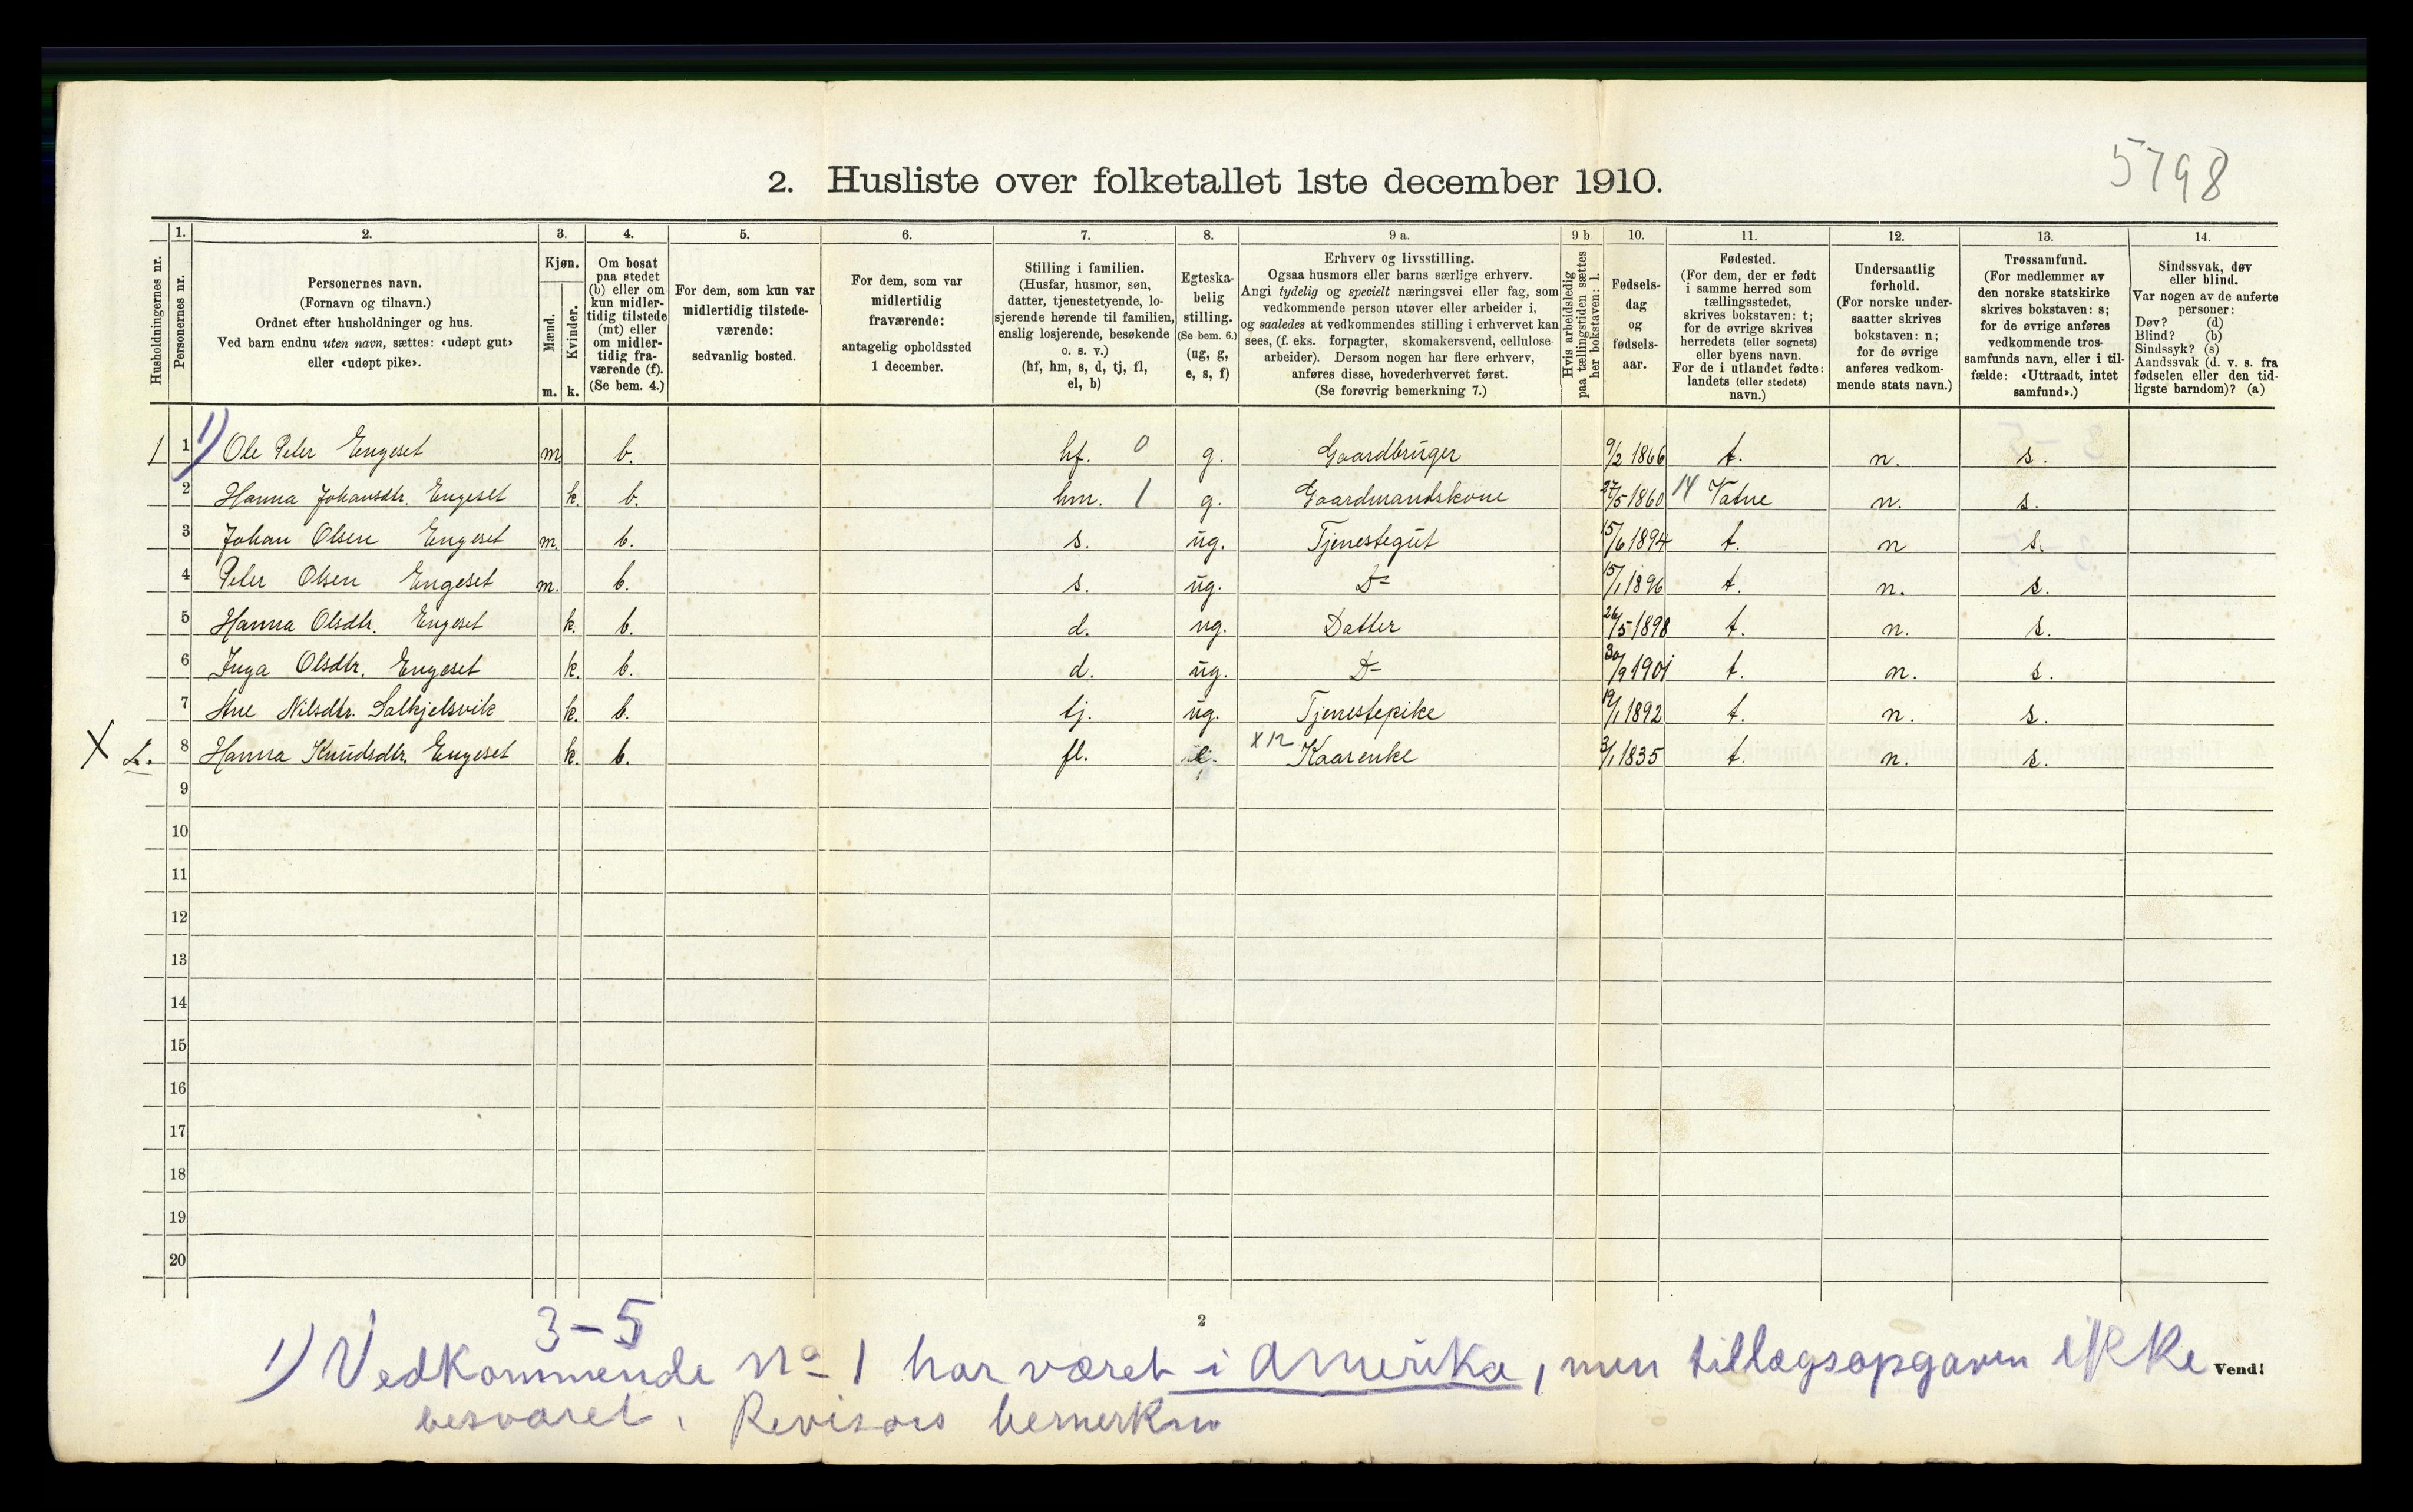 5798
2. Husliste over folketallet 1ste december 1910.
Husholdningernes nr.
1. Personernes nr.
2. Personernes navn.
(Fornavn og tilnavn.)
Ordnet efter husholdninger og hus.
Ved barn endnu uten navn, sættes: «udøpt gut»
eller «udøpt pike».
3. Kjøn.
Mænd. m.
Kvinder. k.
4. Om bosat
paa stedet
(b) eller om
kun midler-
tidig tilstede
(mt) eller
om midler-
tidig fra-
værende (f).
(Se bem. 4.)
5. For dem, som kun var
midlertidig tilstede-
værende:
sedvanlig bosted.
6. For dem, som var
midlertidig
fraværende:
antagelig opholdssted
1 december.
7. Stilling i familien.
(Husfar, husmor, søn,
datter, tjenestetyende, lo-
sjerende hørende til familien,
enslig losjerende, besøkende
o. s. v.)
(hf, hm, s, d, tj, fl,
el, b)
8. Egteska-
belig
stilling.
(Se bem. 6.)
(ug, g,
e, s, f)
9 a. Erhverv og livsstilling.
Ogsaa husmors eller barns særlige erhverv.
Angi tydelig og specielt næringsvei eller fag, som
vedkommende person utøver eller arbeider i,
og saaledes at vedkommendes stilling i erhvervet kan
sees, (f. eks. forpagter, skomakersvend, cellulose-
arbeider). Dersom nogen har flere erhverv,
anføres disse, hovederhvervet først.
(Se forøvrig bemerkning 7.)
9 b Hvis arbeidsledig
paa tællingstiden sættes
her bokstaven: l.
10. Fødsels-
dag
og
fødsels-
aar.
11. Fødested.
(For dem, der er født
i samme herred som
tællingsstedet,
skrives bokstaven: t;
for de øvrige skrives
herredets (eller sognets)
eller byens navn.
For de i utlandet fødte:
landets (eller stedets)
navn.)
12. Undersaatlig
forhold.
(For norske under-
saatter skrives
bokstaven: n;
for de øvrige
anføres vedkom-
mende stats navn.)
13. Trossamfund.
(For medlemmer av
den norske statskirke
skrives bokstaven: s;
for de øvrige anføres
vedkommende tros-
samfunds navn, eller i til-
fælde: «Uttraadt, intet
samfund».)
14. Sindssvak, døv
eller blind.
Var nogen av de anførte
personer:
Døv? (d)
Blind? (b)
Sindssyk? (s)
Aandssvak (d. v. s. fra
fødselen eller den tid-
ligste barndom)? (a)
1 1 1) Ole Peter Engeset m b. hf. 0 g. Gaardbruger 9/2 1866 t. n. s.
2 Hanna Johansdtr. Engeset k. b. hm. 1 g. Gaardmandskone 27/5 1860 14 Vatne n. s.
3 Johan Olsen Engeset m. b. s. ug. Tjenestegut 15/6 1894 t. n s.
4 Peter Olsen Engeset m. b. s. ug. D= 15/1 1896 t. n. s.
5 Hanna Olsdtr. Engeset k. b. d. ug. Datter 26/5 1898 t. n. s.
6 Inga Olsdtr. Engeset k. b. d. ug. D- 30/9 1901 t. n. s.
7 Nilsdtr. k. b. tj. ug. Tjenestepike 19/1 1892 t. n. s.
X 8 Hanna Knudsdtr. Engeset k. b. fl. e. X 12 Kaarenke 3/1 1835 t. n. s.
9
10
11
12
13
14
15
16
17
18
19
20
2
3-5
1) Vedkommende No 1 har været i Amerika, men tillægsopgaven ikke Vend!
besvaret. Revisors